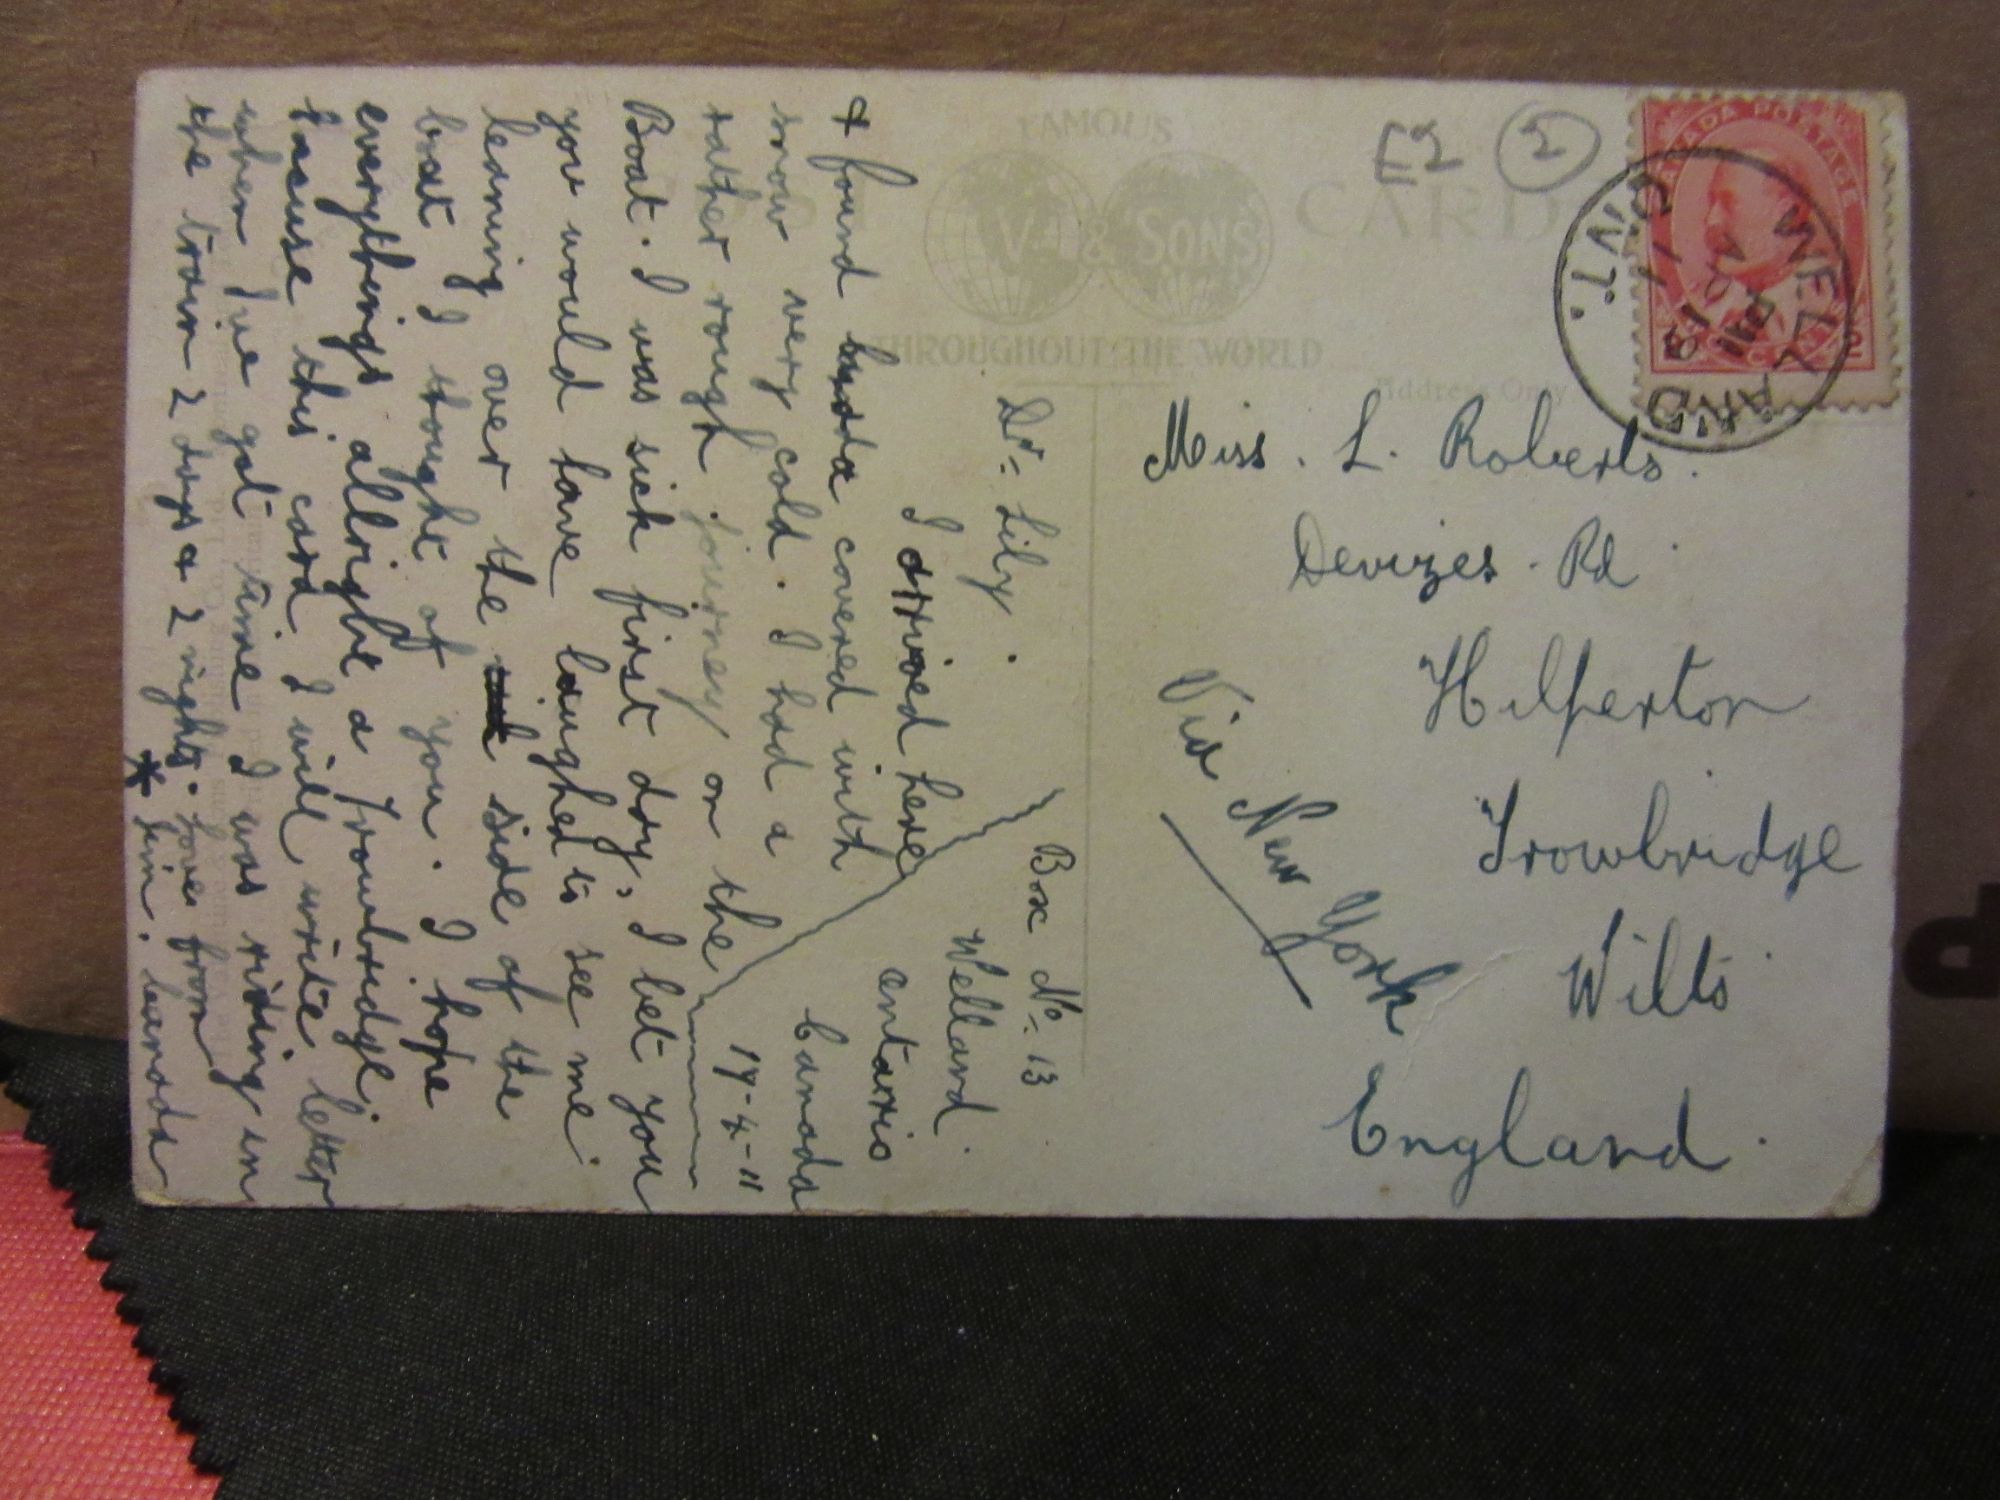 FAMOUS
& SONS
THROUGHOUT THE WORLD
CARD
Address Only
£2
2
CANADA POSTAGE
CENTS
WELLAND
PM
AP 18
11
ONT.
Miss. L. Roberts.
Devizes. Rd
Hilperton
Trowbridge
Wilts
England.
Via New York
Box No. 13
Welland.
Ontario
Canada
17-4-11
Dr. Lily.
I arrived here
& found canada covered with
snow very cold. I had a
rather rough journey on the
Boat. I was sick first day, I bet you
you would have laughed to see me
leaning over the side of the
boat I thought of you. I hope
everythings allright a Trowbridge.
Excuse this card I will write letter
when I've got time I was riding in
the train 2 days & 2 nights. love from
Jim.